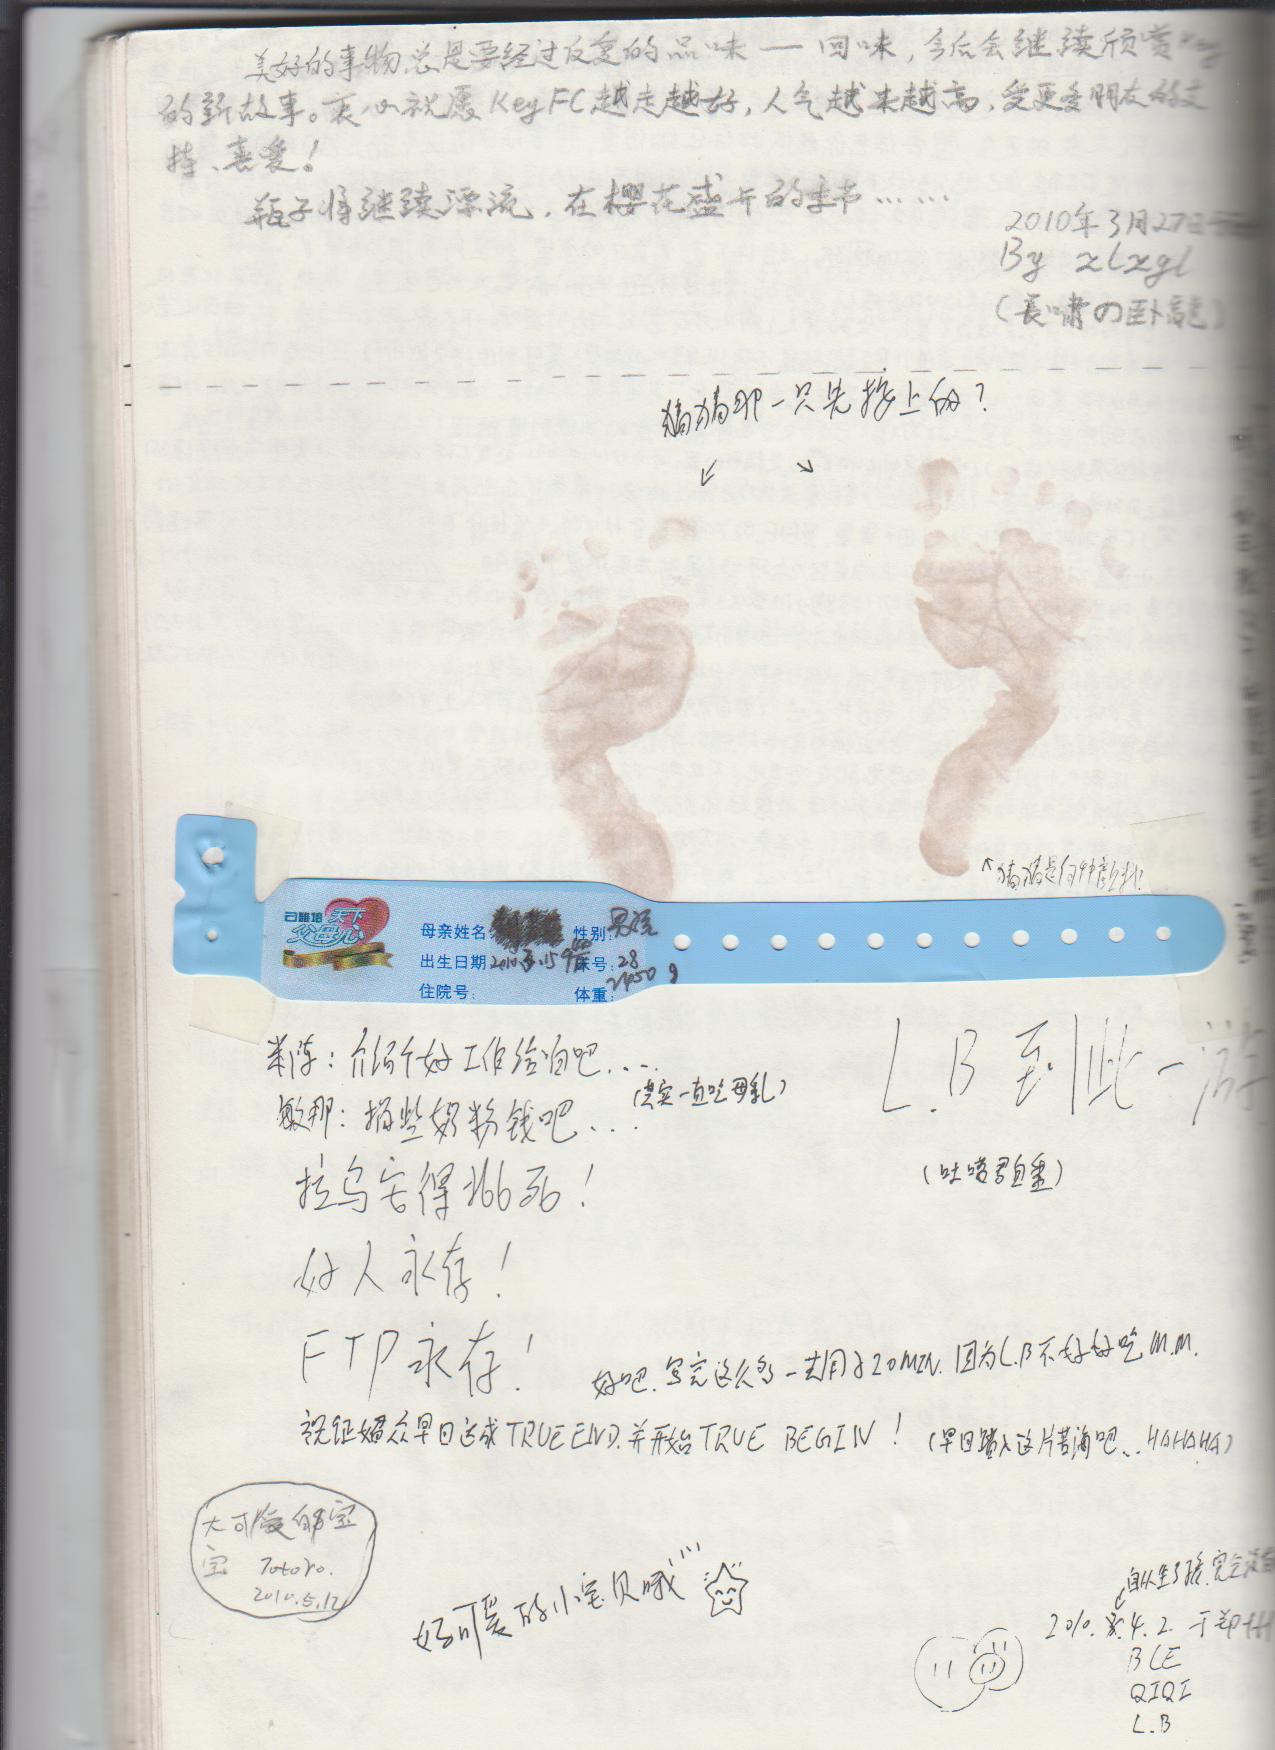 美好的事物总是要经过反复的品味——回味，今后会继续欣赏Key
的新故事。衷心祝愿KeyFC越走越好，人气越来越高，受更多朋友的支
持、喜爱！
瓶子将继续漂流，在樱花盛开的季节……
2010年3月27日
By xlxgl
(長嘯の卧龍)
猜猜那一只先按上的？
↙ ↘
↖猜猜是何种颜料？
天下
父母心
母亲姓名 性别：男孩
出生日期 2010.3.15 床号：28
住院号： 体重：2450g
L.B 到此一游
(吐嘈君自重)
介绍个好工作给咱吧....
敏那：捐些奶粉钱吧... (其实一直吃母乳)
好人永存！
FTP永存！
好吧.写完这么多一共用了20MIN.因为L.B不好好吃M.M.
早日达成TRUE END.并开始TRUE BEGIN！(早日踏入这片苦海吧... HAHAHA)
大可爱的宝
宝 Totoro.
2010.5.12
好可爱的小宝贝哦
自从生了孩.完全没有
2010. 4. 2. 于郑州
BLE
QIQI
L.B